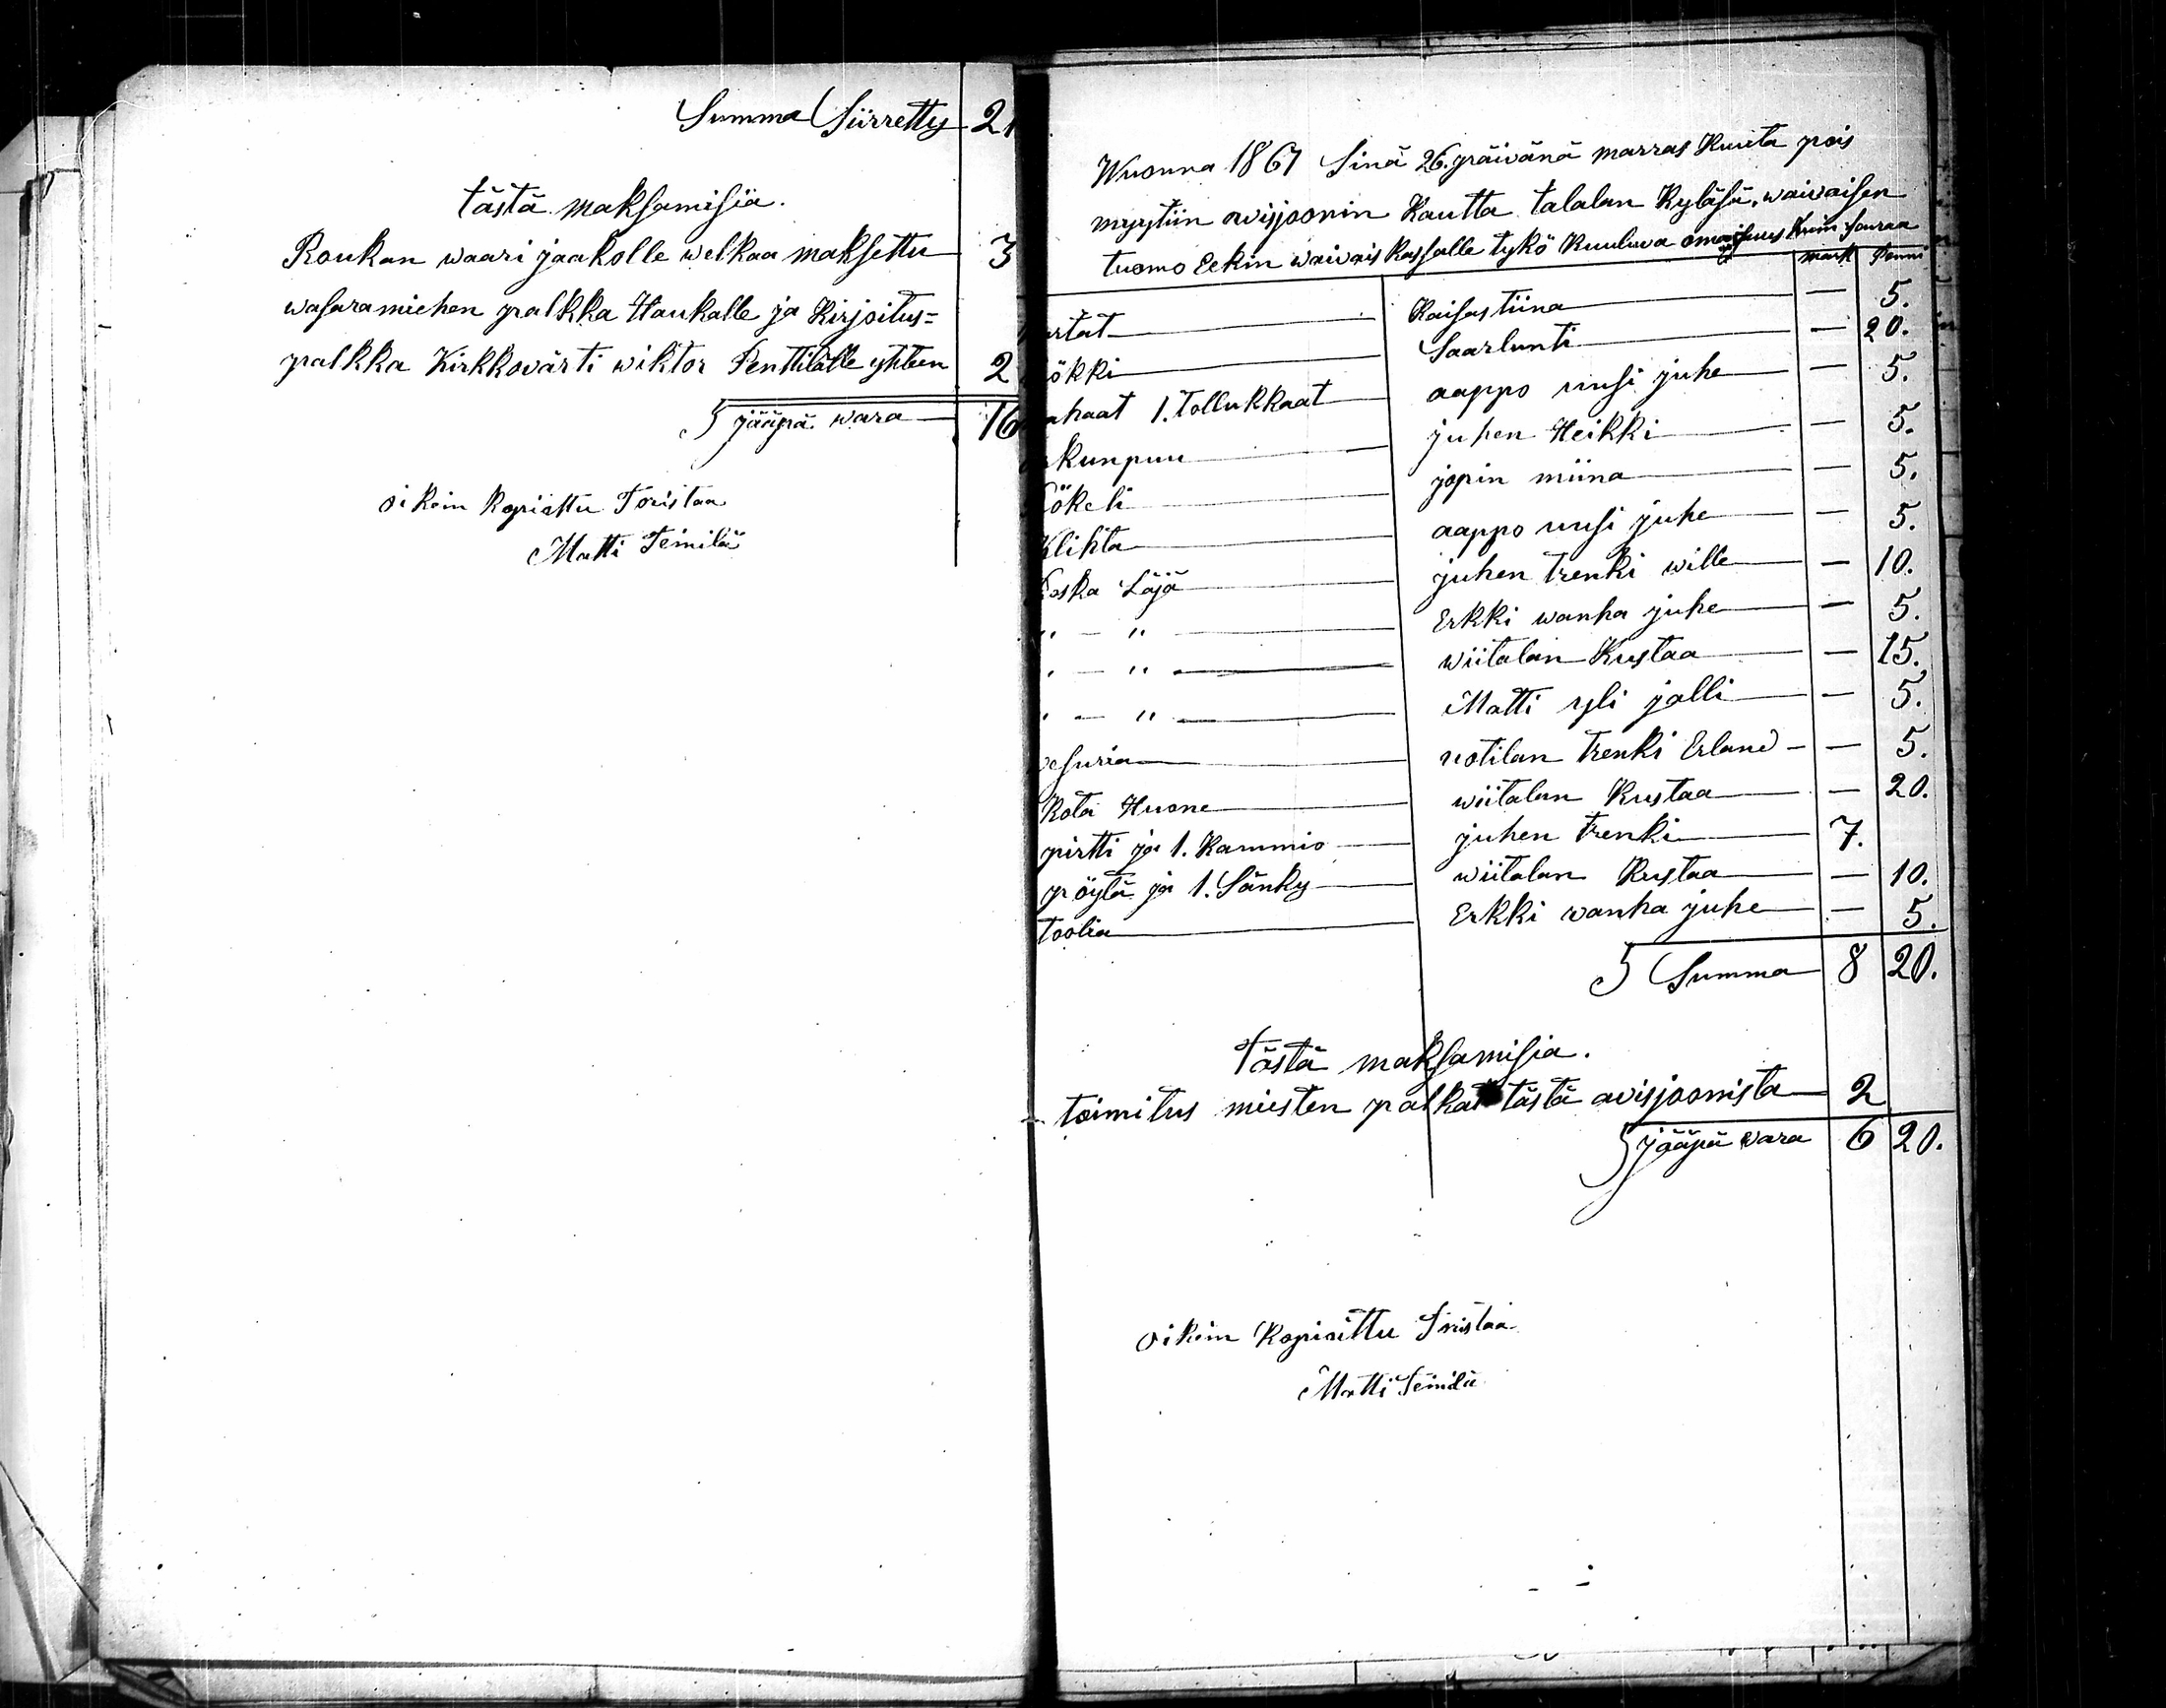 Summa Siirretty 21
tästä maksamisia.
Roukan waari jaakolle welkaa maksettu 3
wasaramiehen palkka Haukalle ja Kirjoitus=
palkka Kirkkovärti wiktor Penttilälle yhteen 2
jääpä wara 16
oikein kopiattu Toistaa
Matti Teinilä
Wuonna 1867 Sinä 26. päivänä marras Kuuta pois
myytiin avisjoonin Kautta talalan Kyläsä, waivaisen
tuomo Eekin waivais kassalle tykö Kuuluva omaisuus Kuin seuraa
mark Penni
rtat Kaisastiina — 5.
ökki Saarlunti — 20.
ahaat 1. tollukkaat aappo uusi juhe — 5.
kunpuu juhen Heikki — 5.
ökeli jopin miina — 5.
Klihta aappo uusi juhe — 5.
Keska Läjä juhen trenki wille — 10.
" — " Erkki wanha juhe — 5.
" — " wiitalan Kustaa — 15.
" — " Matti yli jalli — 5.
vesuria uotilan trenki Erland — 5.
Kota Huone wiitalan Kustaa — 20.
pirtti ja 1. Kammio juhen trenki 7.
pöytä ja 1. Sänky wiitalan Kustaa — 10.
toolia Erkki wanha juhe — 5.
Summa 8 20.
Tästä maksamisia.
toimitus miesten palkat tästä avisjoonista 2
jääpä wara 6 20.
oikein Kopiattu Toistaa
Matti Teinilä